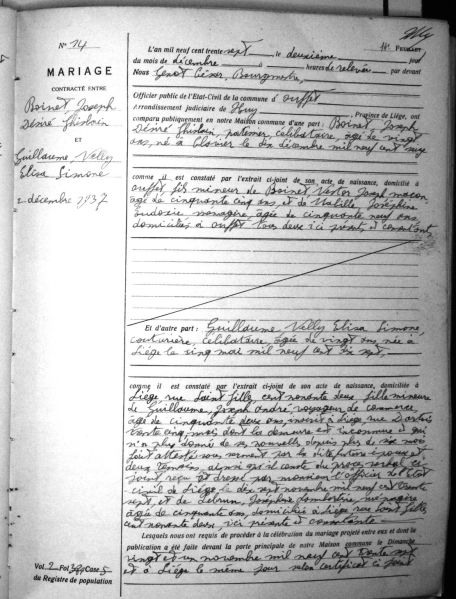 N° 74
MARIAGE
CONTRACTÉ ENTRE
Boinet Joseph
Désiré Ghislain
ET
Guillaume Velly
Elisa Simone
2 décembre 1937
11e FEUILLET
L'an mil neuf cent trente sept, le deuxième jour
du mois de décembre à heures de relevée, par devant
Nous Genot César, Bourgmestre,
Officier public de l'Etat-Civil de la commune d'Ouffet
Arrondissement judiciaire de Huy, Province de Liége, ont
comparu publiquement en notre Maison commune d'une part : Boinet Joseph
Désiré Ghislain, célibataire, âgé de vingt
ans, né à Clavier le dix décembre mil neuf cent
comme il est constaté par l'extrait ci-joint de son acte de naissance, domicilié à
Ouffet, fils mineur de Boinet Victor Joseph, maçon,
âgé de cinquante cinq ans, et de Joséphine
ménagère, âgée de cinquante neuf ans,
domiciliés à Ouffet tous deux ici présents et consentants
Et d'autre part : Guillaume Velly Elisa Simone,
couturière, célibataire, âgée de vingt ans, née à
Liége le vingt mai mil neuf cent dix sept,
comme il est constaté par l'extrait ci-joint de son acte de naissance, domiciliée à
Liége rue Saint Gille cent nonante deux, fille mineure
de Guillaume, Joseph André, voyageur de commerce,
âgé de cinquante deux ans, inscrit à Liége rue
vingt cinq, mais dont la demeure est inconnue et qui
n'a plus donné de ses nouvelles depuis plus de six mois
fait attesté sous serment par la dite future épouse et
deux témoins, ainsi qu'il conste du procès verbal ci-
joint reçu et dressé par monsieur l'officier de l'état
civil de Liége, le dix sept novembre mil neuf cent trente
sept, et de Lebrun, Joséphine ménagère
âgée de cinquante ans, domiciliée à Liége rue Saint Gille,
cent nonante deux, ici présente et consentante
Lesquels nous ont requis de procéder à la célébration du mariage projeté entre eux et dont la
publication a été faite devant la porte principale de notre Maison commune le Dimanche
vingt et un novembre mil neuf cent trente sept
et à Liége le même jour selon certificat ci joint
Vol. 2 Fol. Case 5
du Registre de population